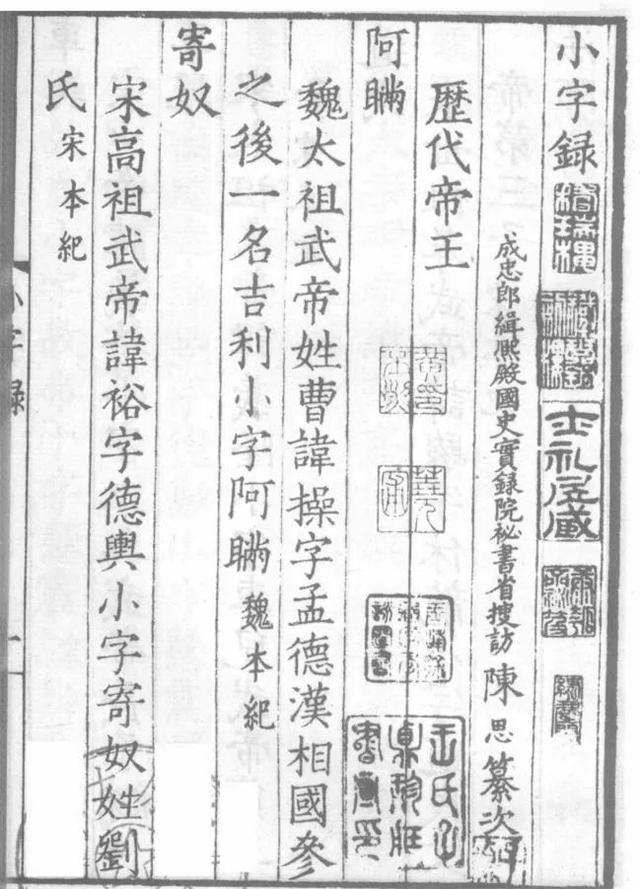 小字録
成忠郎緝熙殿國史實録院祕書省搜訪陳思纂次
歷代帝王
阿瞞
魏太祖武帝姓曹諱操字孟德漢相國參
之後一名吉利小字阿瞞魏本紀
寄奴
宋高祖武帝諱裕字德輿小字寄奴姓劉
氏宋本紀
小字録
一
士礼居藏